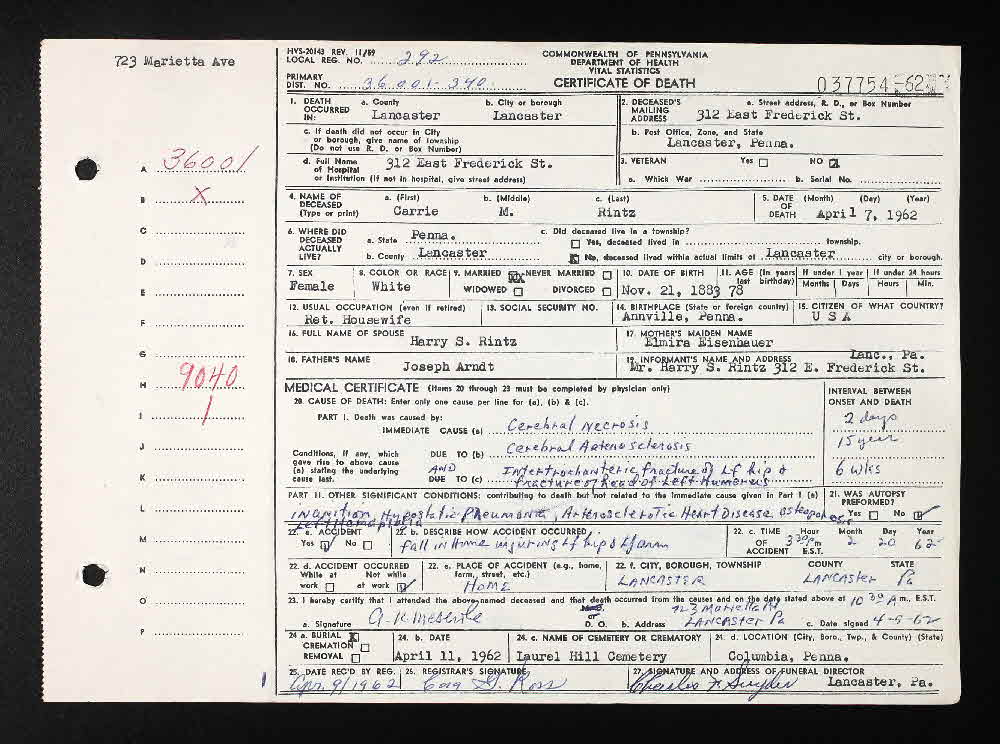 723 Marietta Ave
HVS-20143 REV. 11/59
LOCAL REG. NO. 292
COMMONWEALTH OF PENNSYLVANIA
DEPARTMENT OF HEALTH
VITAL STATISTICS
PRIMARY
DIST. NO. 36001-340
CERTIFICATE OF DEATH
037754-62
1. DEATH OCCURRED IN: a. County b. City or borough
Lancaster Lancaster
c. If death did not occur in City
or borough, give name of township
(Do not use R. D. or Box Number)
d. Full Name of Hospital 312 East Frederick St.
or Institution (If not in hospital, give street address)
2. DECEASED'S MAILING ADDRESS a. Street address, R. D., or Box Number
312 East Frederick St.
b. Post Office, Zone, and State
Lancaster, Penna.
3. VETERAN Yes NO
a. Which War b. Serial No.
4. NAME OF DECEASED (Type or print) a. (First) b. (Middle) c. (Last)
Carrie M. Rintz
5. DATE OF DEATH (Month) (Day) (Year)
April 7, 1962
6. WHERE DID DECEASED ACTUALLY LIVE?
a. State Penna.
b. County Lancaster
c. Did deceased live in a township?
Yes, deceased lived in township.
No, deceased lived within actual limits of Lancaster city or borough.
7. SEX
Female
8. COLOR OR RACE
White
9. MARRIED NEVER MARRIED
WIDOWED DIVORCED
10. DATE OF BIRTH
Nov. 21, 1883
11. AGE (In years last birthday)
78
If under 1 year If under 24 hours
Months Days Hours Min.
12. USUAL OCCUPATION (even if retired)
Ret. Housewife
13. SOCIAL SECURITY NO.
14. BIRTHPLACE (State or foreign country)
Annville, Penna.
15. CITIZEN OF WHAT COUNTRY?
U S A
16. FULL NAME OF SPOUSE
Harry S. Rintz
17. MOTHER'S MAIDEN NAME
Elmira Eisenhauer
18. FATHER'S NAME
Joseph Arndt
19. INFORMANT'S NAME AND ADDRESS Lanc., Pa.
Mr. Harry S. Rintz 312 E. Frederick St.
MEDICAL CERTIFICATE (Items 20 through 23 must be completed by physician only)
20. CAUSE OF DEATH: Enter only one cause per line for (a), (b) & (c).
INTERVAL BETWEEN ONSET AND DEATH
PART I. Death was caused by:
IMMEDIATE CAUSE (a) Cerebral Necrosis 2 days
Conditions, if any, which gave rise to above cause (a) stating the underlying cause last.
DUE TO (b) Cerebral Arteriosclerosis 15 year
AND
DUE TO (c) Intertrochanteric fracture of Lf hip & 6 wks
fracture of head of Left Humerus
PART II. OTHER SIGNIFICANT CONDITIONS: contributing to death but not related to the immediate cause given in Part I (a)
inanition, Hypostatic Pneumonia, Arteriosclerotic Heart Disease, osteoporosis
Left Hemiplegia
21. WAS AUTOPSY PREFORMED?
Yes No
22. a. ACCIDENT
Yes No
22. b. DESCRIBE HOW ACCIDENT OCCURRED:
fall in Home injuring Lf hip & Lf arm
22. c. TIME OF ACCIDENT Hour Month Day Year
3 30 P m E.S.T. 2 20 62
22. d. ACCIDENT OCCURRED
While at work Not while at work
22. e. PLACE OF ACCIDENT (e.g., home, farm, street, etc.)
HOME
22. f. CITY, BOROUGH, TOWNSHIP COUNTY STATE
LANCASTER LANCASTER Pa
23. I hereby certify that I attended the above-named deceased and that death occurred from the causes and on the date stated above at 10 30 A m., E.S.T.
a. Signature M.D. or D. O. b. Address 723 Marietta Av
LANCASTER Pa c. Date signed 4-9-62
24 a. BURIAL
CREMATION
REMOVAL
24. b. DATE
April 11, 1962
24. c. NAME OF CEMETERY OR CREMATORY
Laurel Hill Cemetery
24. d. LOCATION (City, Boro., Twp., & County) (State)
Columbia, Penna.
25. DATE REC'D BY REG.
Apr. 9/1962
26. REGISTRAR'S SIGNATURE
Ross
27. SIGNATURE AND ADDRESS OF FUNERAL DIRECTOR
Charles F. Snyder Lancaster, Pa.
A 36001
B X
C
D
E
F
G
H 9040
I 1
J
K
L
M
N
O
P